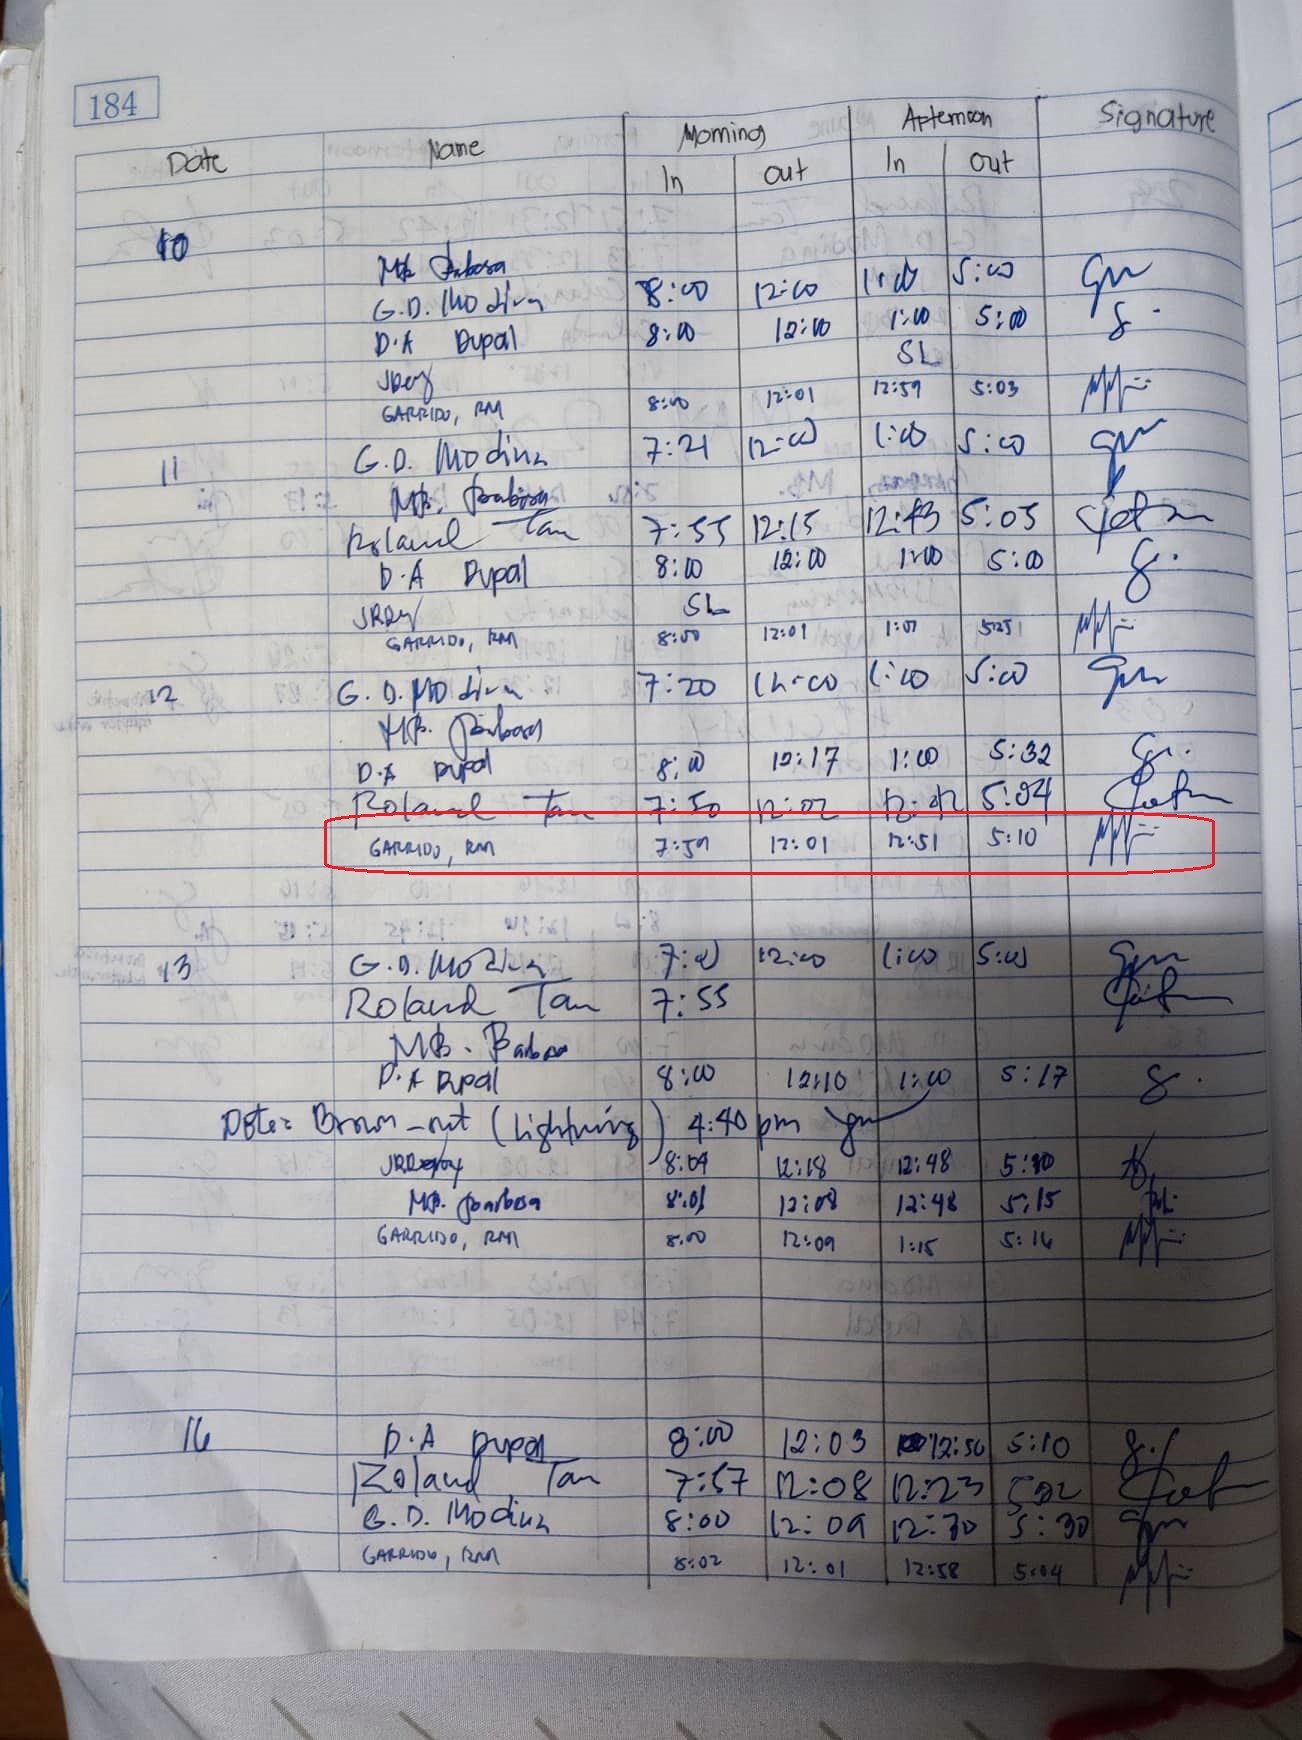 184
Date Name Morning Afternoon Signature
In Out In Out
10
MB. Barbosa
G.D. Modina 8:00 12:00 1:00 5:00
D.A Dupal 8:00 12:00 1:00 5:00
SL
GARRIDO, RM 8:00 12:01 12:59 5:03
11 G.D. Modina 7:21 12:00 1:00 5:00
MB. Barbosa
Roland Tan 7:55 12:15 12:43 5:05
D.A Dupal 8:00 12:00 1:00 5:00
SL
GARRIDO, RM 8:00 12:01 1:01
12 G.D. Modina 7:20 12:00 1:00 5:00
MB. Barbosa
D.A Dupal 8:00 12:17 1:00 5:32
Roland Tan 7:50 12:02 12:42 5:04
GARRIDO, RM 7:59 12:01 12:51 5:10
13 G.D. Modina 7:00 12:00 1:00 5:00
Roland Tan 7:55
MB. Barbosa
D.A Dupal 8:00 12:10 1:00 5:17
Note: Brown-out (Lightning) 4:40 pm
8:04 12:18 12:48
MB. Barbosa 8:01 12:08 12:48 5:15
GARRIDO, RM 8:00 12:09 1:15 5:16
16 D.A Dupal 8:00 12:03 12:50 5:10
Roland Tan 7:57 12:08 12:23
G.D. Modina 8:00 12:09 12:30 5:30
GARRIDO, RM 8:02 12:01 12:58 5:04